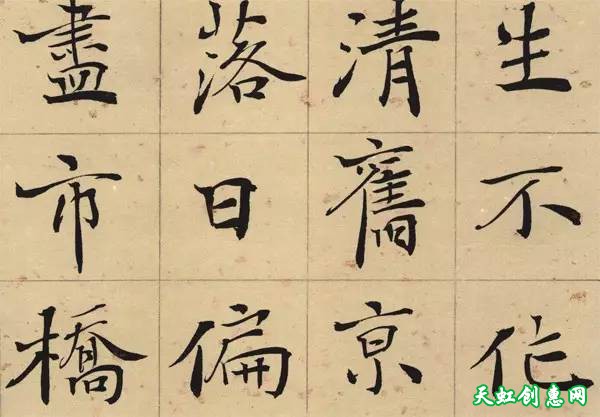 生不作
清舊京
落日偏
盡市橋
天虹创惠网